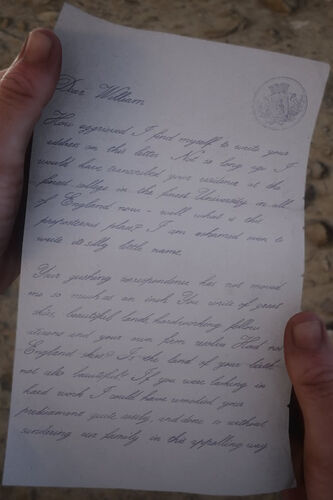 Dear William
How aggrieved I find myself to write your
address on this letter. Not so long ago I
would have transcribed your residence at the
finest college in the finest University in all
of England now - well what is this
preposterous place? I am ashamed even to
write its silly little name.
Your gushing correspondence has not moved
me so much as an inch. You write of great
skies, beautiful lands, hardworking fellow
citizens and your own firm resolve. Had not
England skies? Is the land of your birth
not also bountiful? If you were lacking in
hard work I could have remedied your
predicament quite easily, and done so without
sundering our family in this appalling way